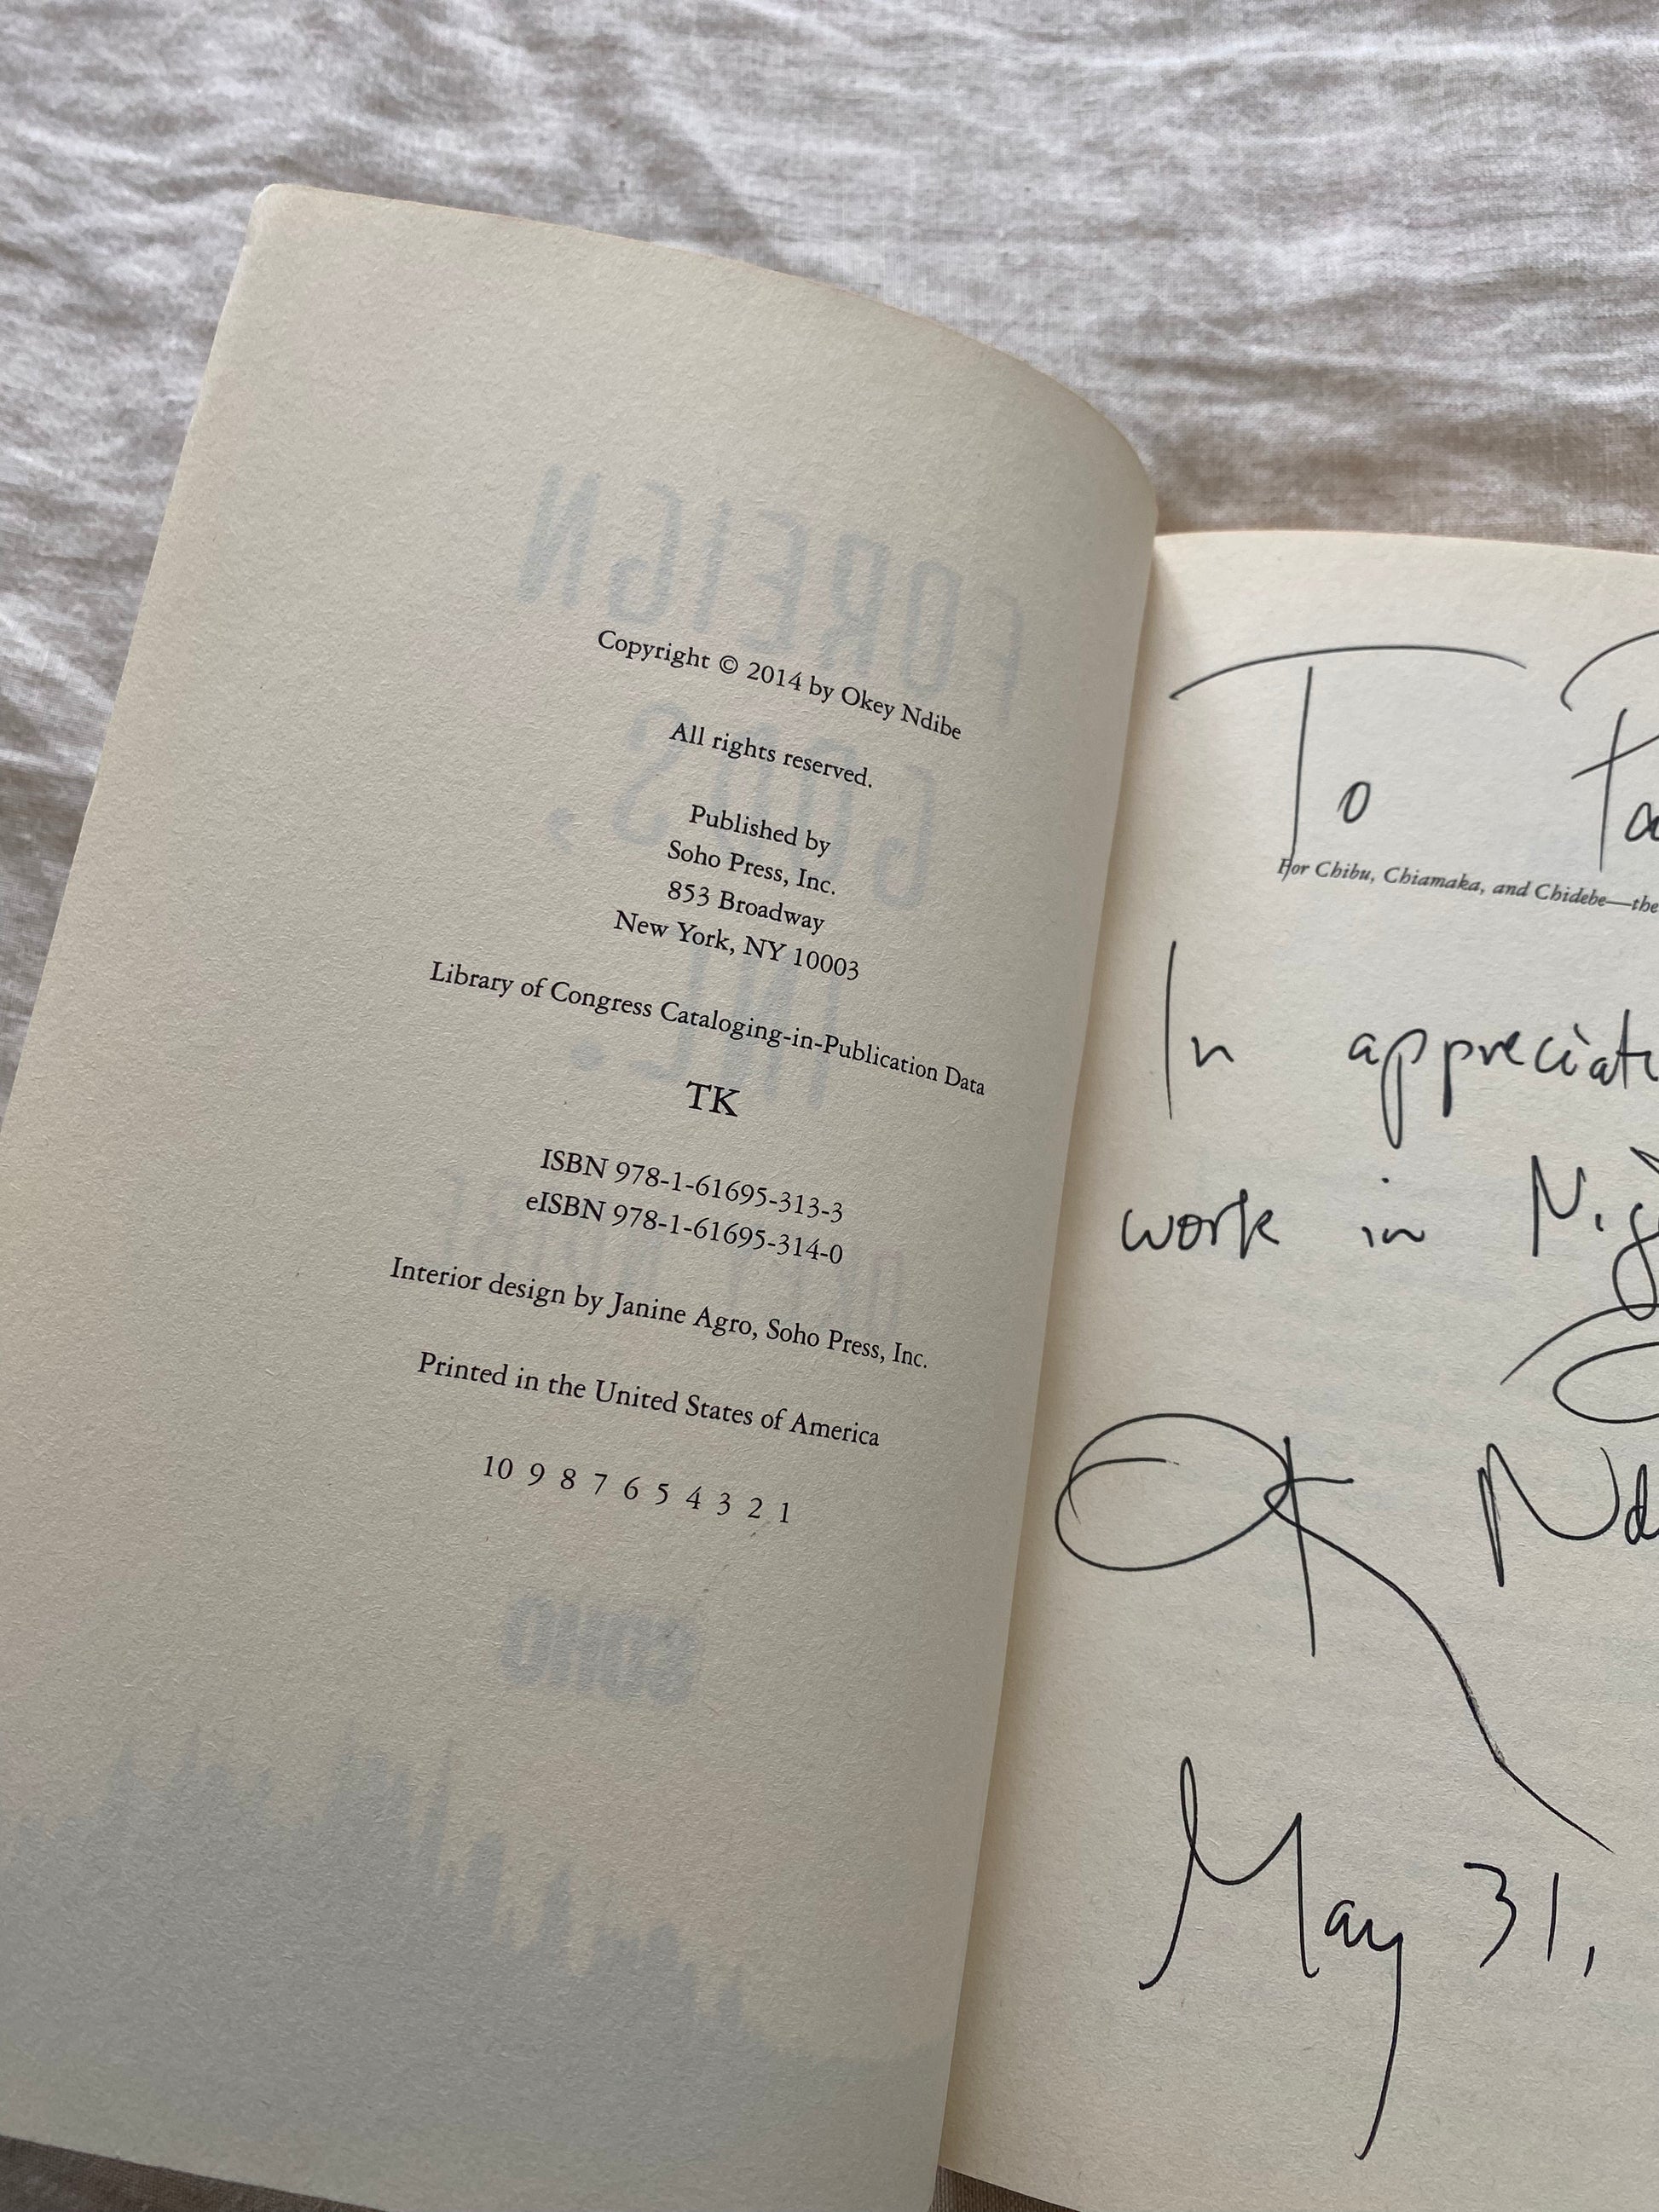 Copyright © 2014 by Okey Ndibe
All rights reserved.
Published by
Soho Press, Inc.
853 Broadway
New York, NY 10003
Library of Congress Cataloging-in-Publication Data
TK
ISBN 978-1-61695-313-3
eISBN 978-1-61695-314-0
Interior design by Janine Agro, Soho Press, Inc.
Printed in the United States of America
10 9 8 7 6 5 4 3 2 1
FOREIGN
GODS,
INC.
SOHO
To
For Chibu, Chiamaka, and Chidebe—the
In appreciat
work in
May 31,